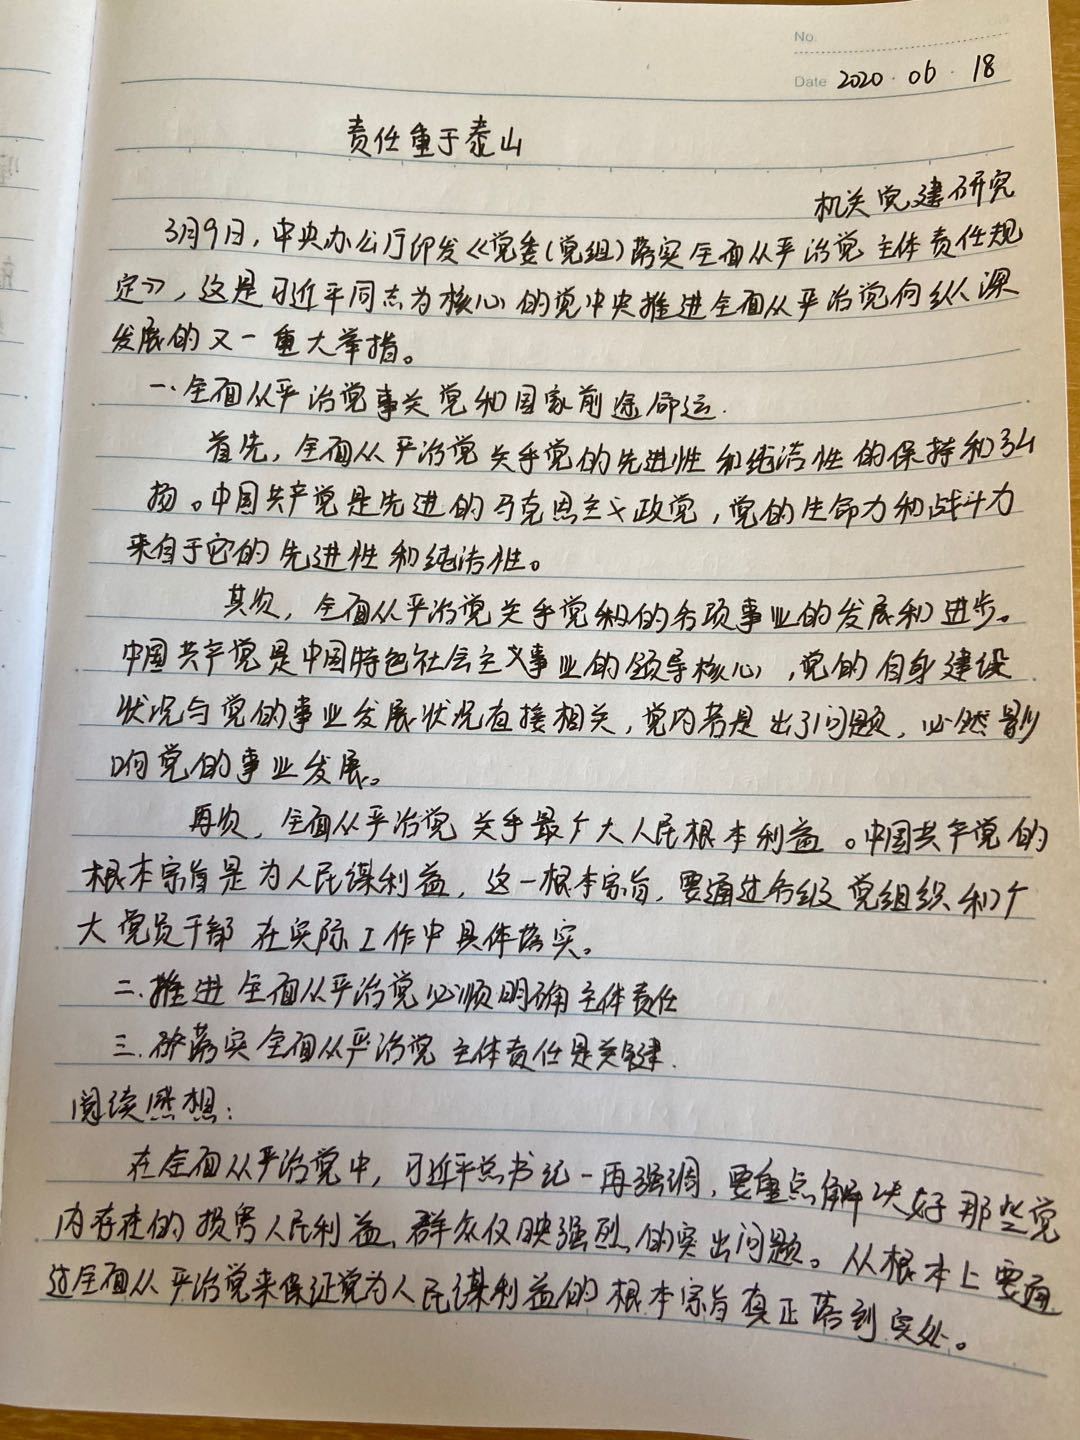 No.
Date 2020.06.18
责任重于泰山
机关党建研究
3月9日，中央办公厅印发《党委(党组)落实全面从严治党主体责任规
定》，这是习近平同志为核心的党中央推进全面从严治党向纵深
发展的又一重大举措。
一.全面从严治党事关党和国家前途命运.
首先，全面从严治党关乎党的先进性和纯洁性的保持和弘
扬。中国共产党是先进的马克思主义政党，党的生命力和战斗力
来自于它的先进性和纯洁性。
其次，全面从严治党关乎党和的各项事业的发展和进步。
中国共产党是中国特色社会主义事业的领导核心，党的自身建设
状况与党的事业发展状况直接相关，党内若是出了问题，必然影
响党的事业发展。
再次，全面从严治党关乎最广大人民根本利益。中国共产党的
根本宗旨是为人民谋利益，这一根本宗旨，要通过各级党组织和广
大党员干部在实际工作中具体落实。
二.推进全面从严治党必须明确主体责任
三.落实全面从严治党主体责任是关键.
阅读感想：
在全面从严治党中，习近平总书记一再强调，要重点解决好那些党
内存在的损害人民利益、群众反映强烈的突出问题。从根本上要通
过全面从严治党来保证党为人民谋利益的根本宗旨真正落到实处。